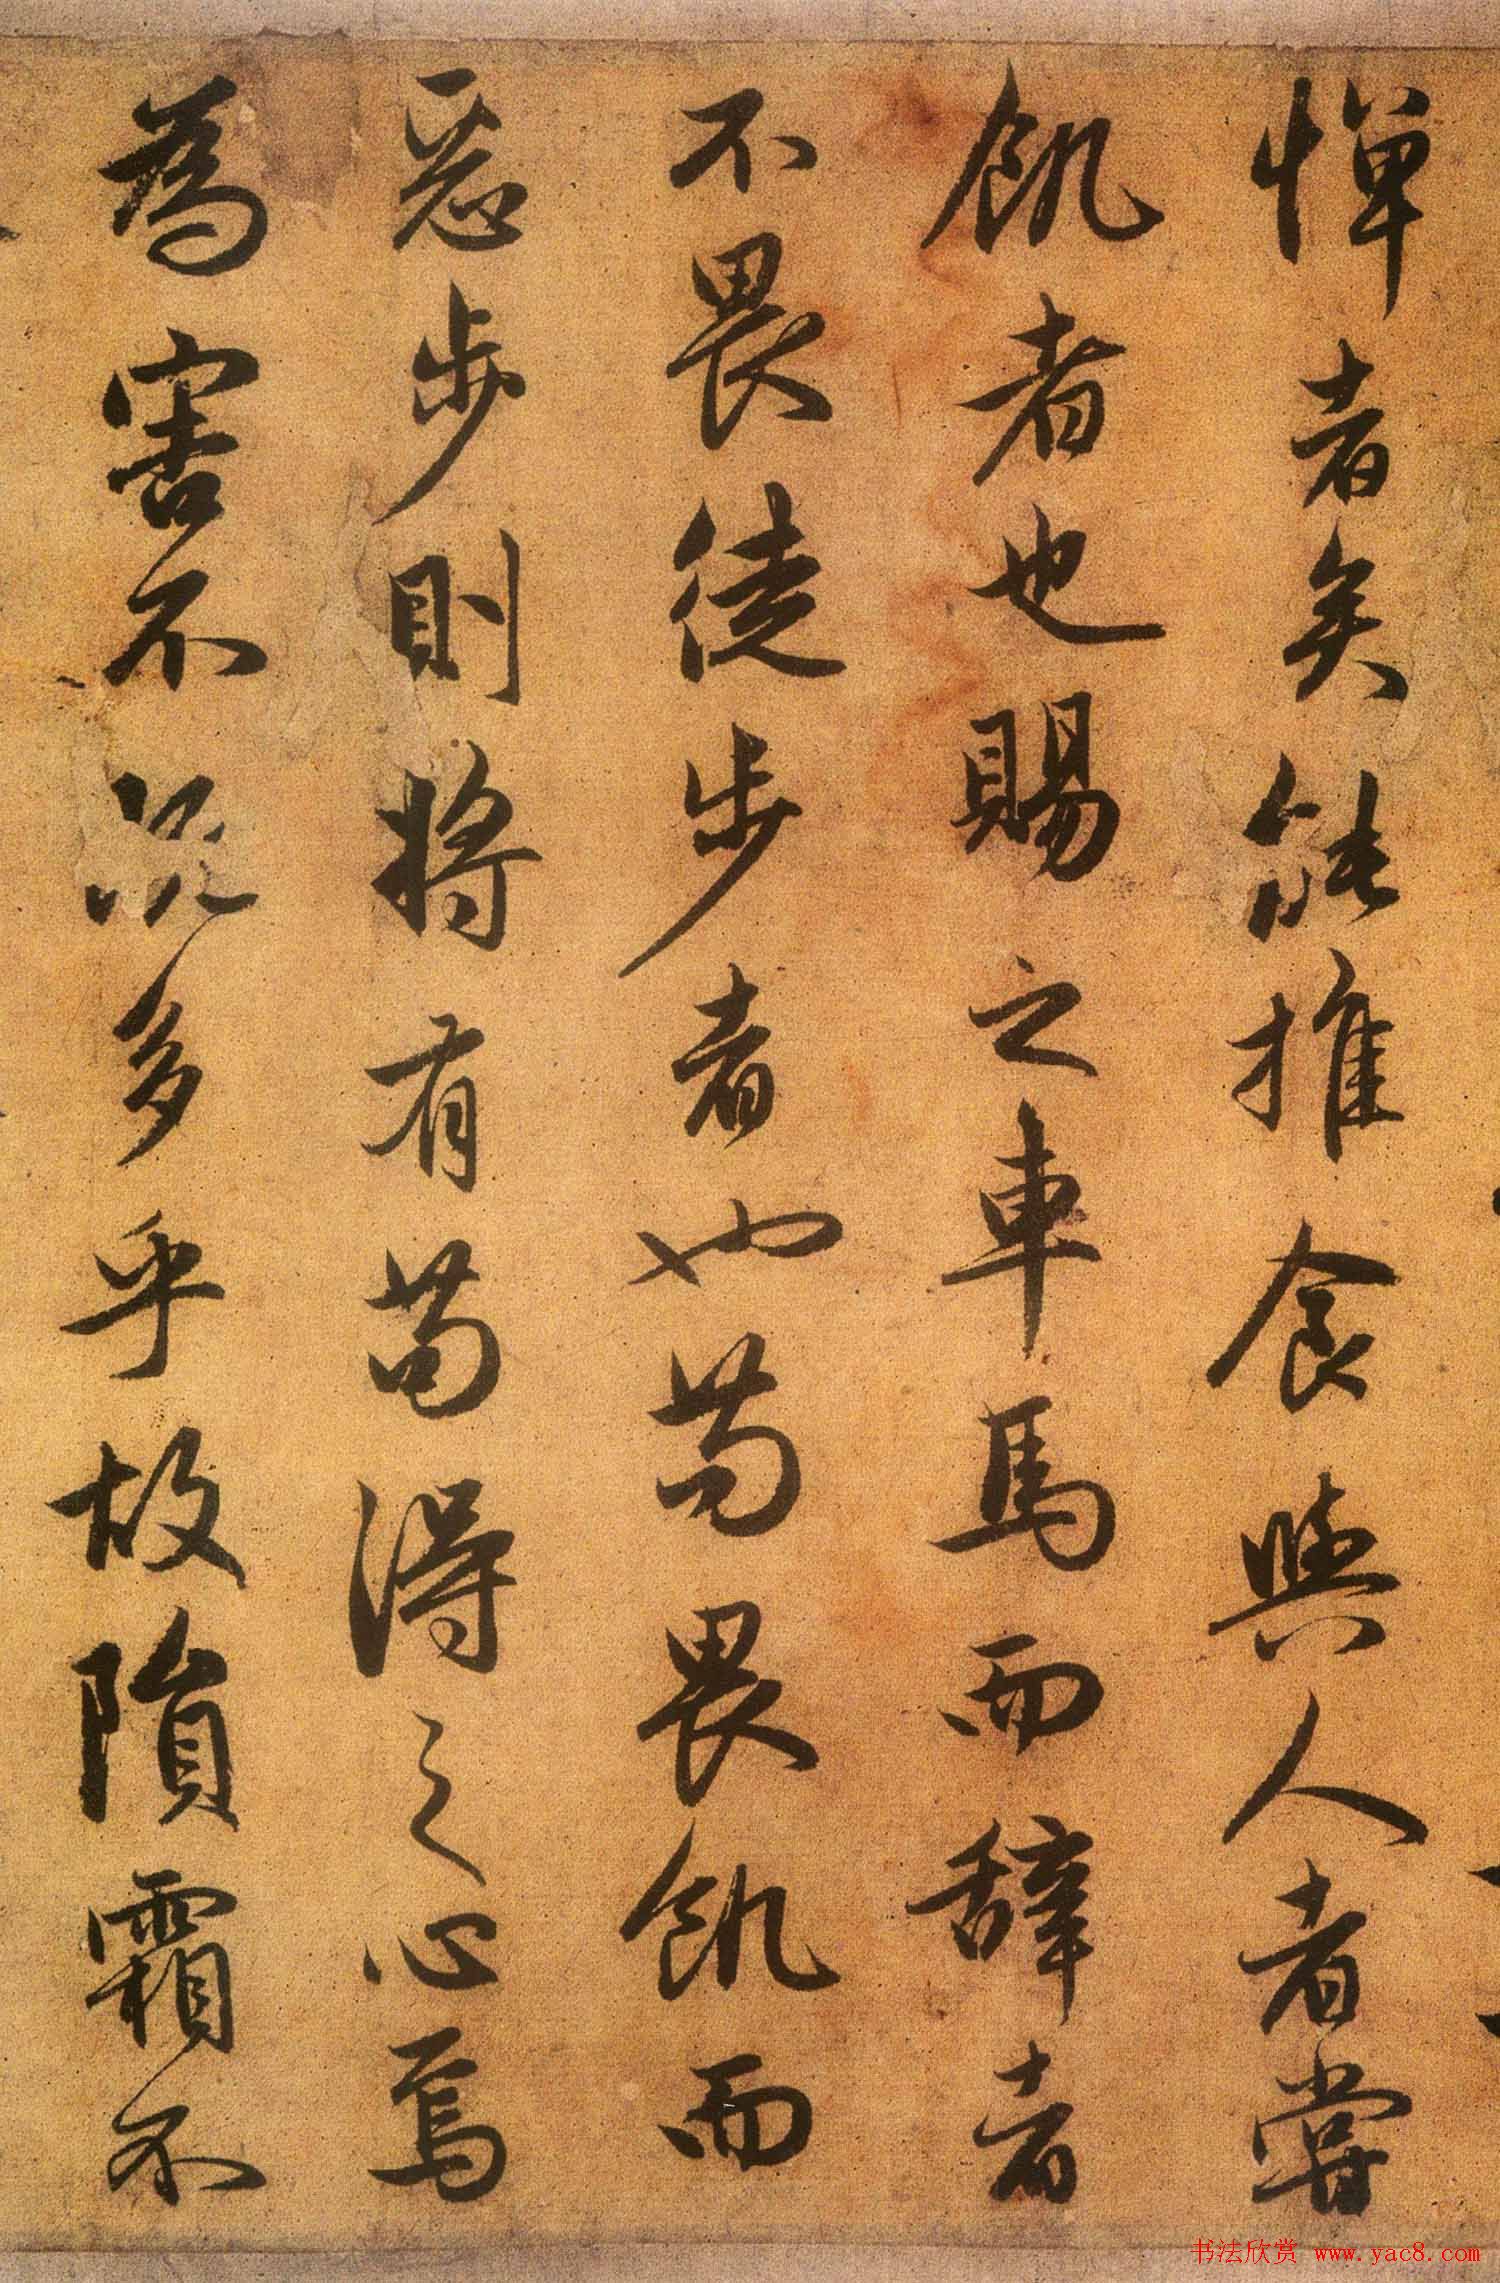 惮者矣能推食與人者嘗
飢者也賜之車馬而辞者
不畏徒步者也苟畏飢而
惡步則将有苟得之心焉
為害不既多乎故隕霜不
书法欣赏 www.yac8.com